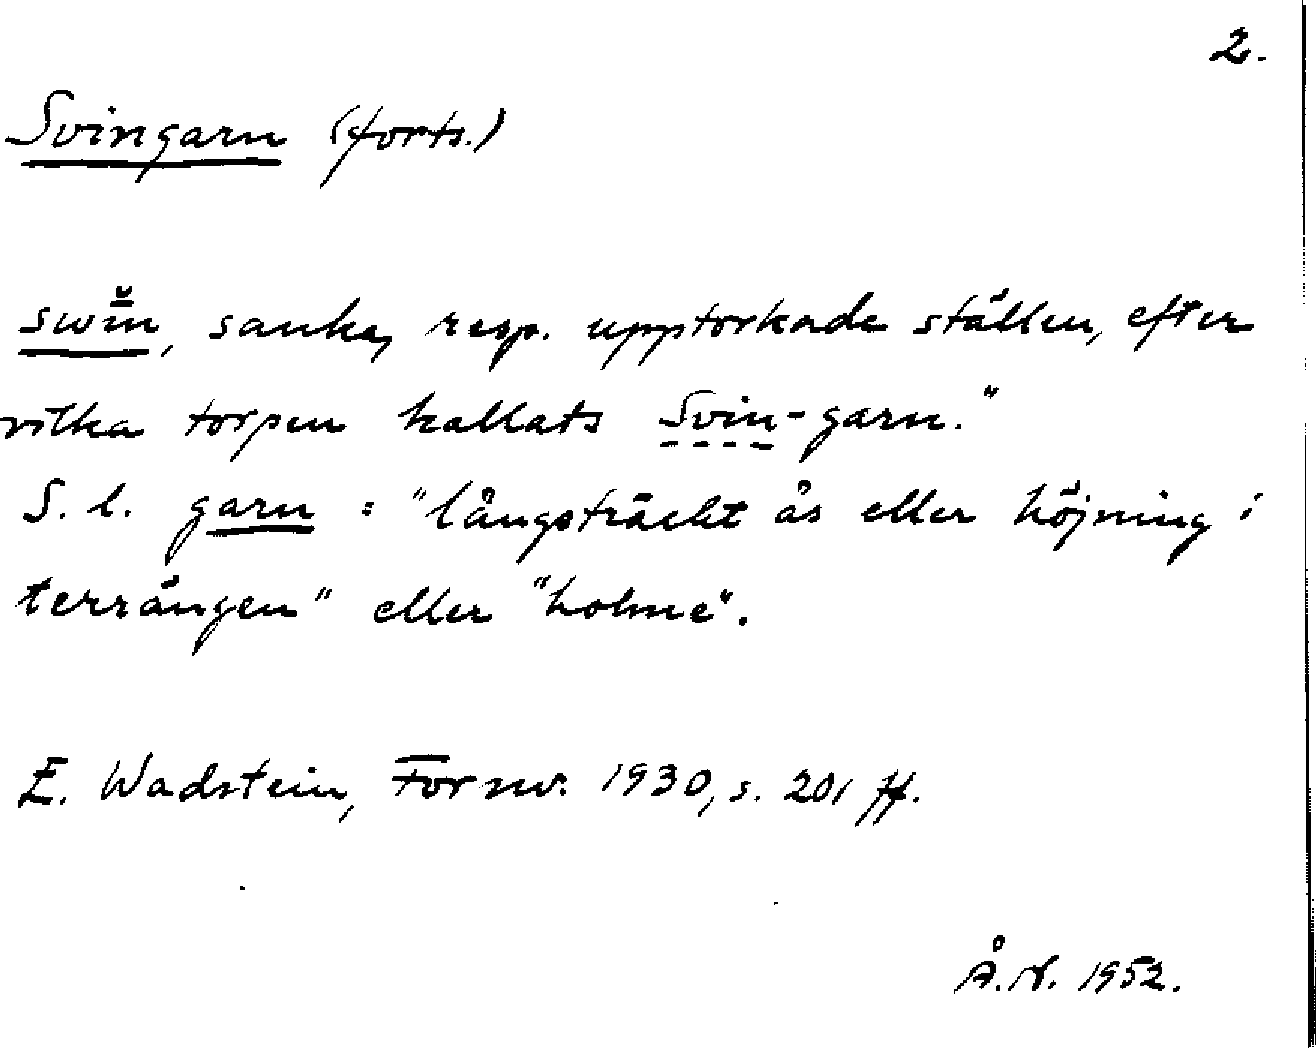 2.
Svingarn (forts.)
swīn, sanka, resp. upptorkade ställen, efter
vilka torpen kallats Svin-garn."
S. l. garn = "långsträckt ås eller höjning i
terrängen" eller "holme".
E. Wadstein, Fornv. 1930, s. 201 ff.
Å. N. 1952.